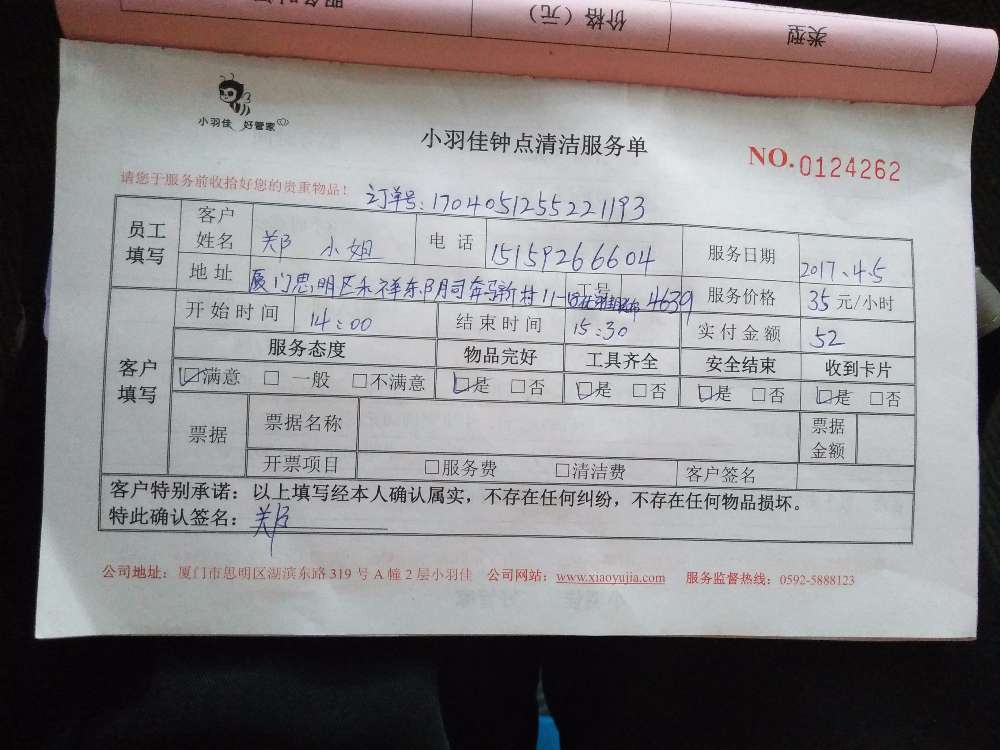 服务时间 价格(元) 类型
小羽佳 好管家
小羽佳钟点清洁服务单
NO.0124262
请您于服务前收拾好您的贵重物品!
订单号:1704051255221193
员工填写 客户姓名 郑 小姐 电话 15159266604 服务日期 2017.4.5
地址 厦门思明区禾祥东 工号 4639 服务价格 35 元/小时
客户填写 开始时间 14:00 结束时间 15:30 实付金额 52
服务态度 物品完好 工具齐全 安全结束 收到卡片
☑满意 □一般 □不满意 ☑是 □否 ☑是 □否 ☑是 □否 ☑是 □否
票据 票据名称 票据金额
开票项目 □服务费 □清洁费 客户签名
客户特别承诺:以上填写经本人确认属实,不存在任何纠纷,不存在任何物品损坏。
特此确认签名:郑
公司地址:厦门市思明区湖滨东路 319 号 A 幢 2 层小羽佳 公司网站:www.xiaoyujia.com 服务监督热线:0592-5888123